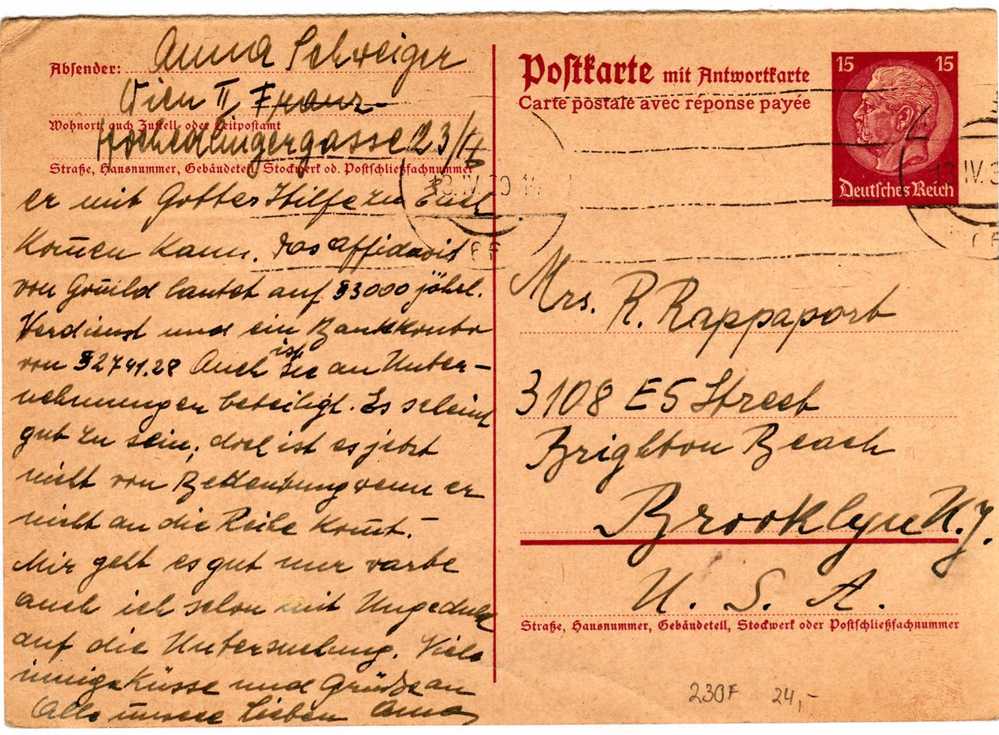 Absender: Anna Schweiger
Wien II, Franz-
Wohnort, auch Zustell- oder Leitpostamt
Hochedlingergasse 23/17
Straße, Hausnummer, Gebäudeteil, Stockwerk od. Postschließfachnummer
er mit Gottes Hilfe zu Euch
kom̄en kann. Das Affidavit
von lautet auf $3000 jährl.
Verdienst und ein Bankkonto
von $2741.28 Auch ist sie an Unter-
nehmungen beteiligt. Es scheint
gut zu sein, doch ist es jetzt
nicht von Bedeutung wenn er
nicht an die Reihe kom̄t.-
Mir geht es gut nur warte
auch ich schon mit Ungeduld
auf die Untersuchung. Viele
innige Küsse und Grüße an
Alle unsere Lieben Anna
Postkarte mit Antwortkarte
Carte postale avec réponse payée
15 15
Deutsches Reich
Mrs. R. Rappaport
3108 E 5 Street
Brighton Beach
Brooklyn N.Y.
U. S. A.
Straße, Hausnummer, Gebäudeteil, Stockwerk oder Postschließfachnummer
230F 24,-